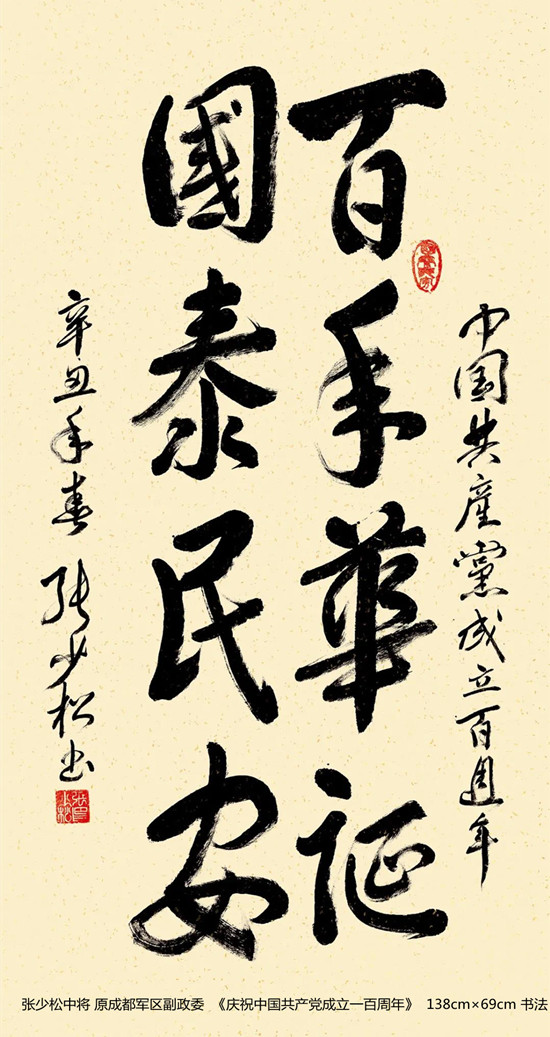 中国共産黨成立百週年
百年華诞
國泰民安
辛丑年春 张少松书
张少松中将 原成都军区副政委 《庆祝中国共产党成立一百周年》 138cm×69cm 书法